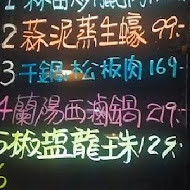 1
2 蒜泥蒸生蠔 99.-
3 干鍋松板肉 169.-
4 蘭陽西滷鍋 219.-
5 椒鹽龍珠 129.-
6